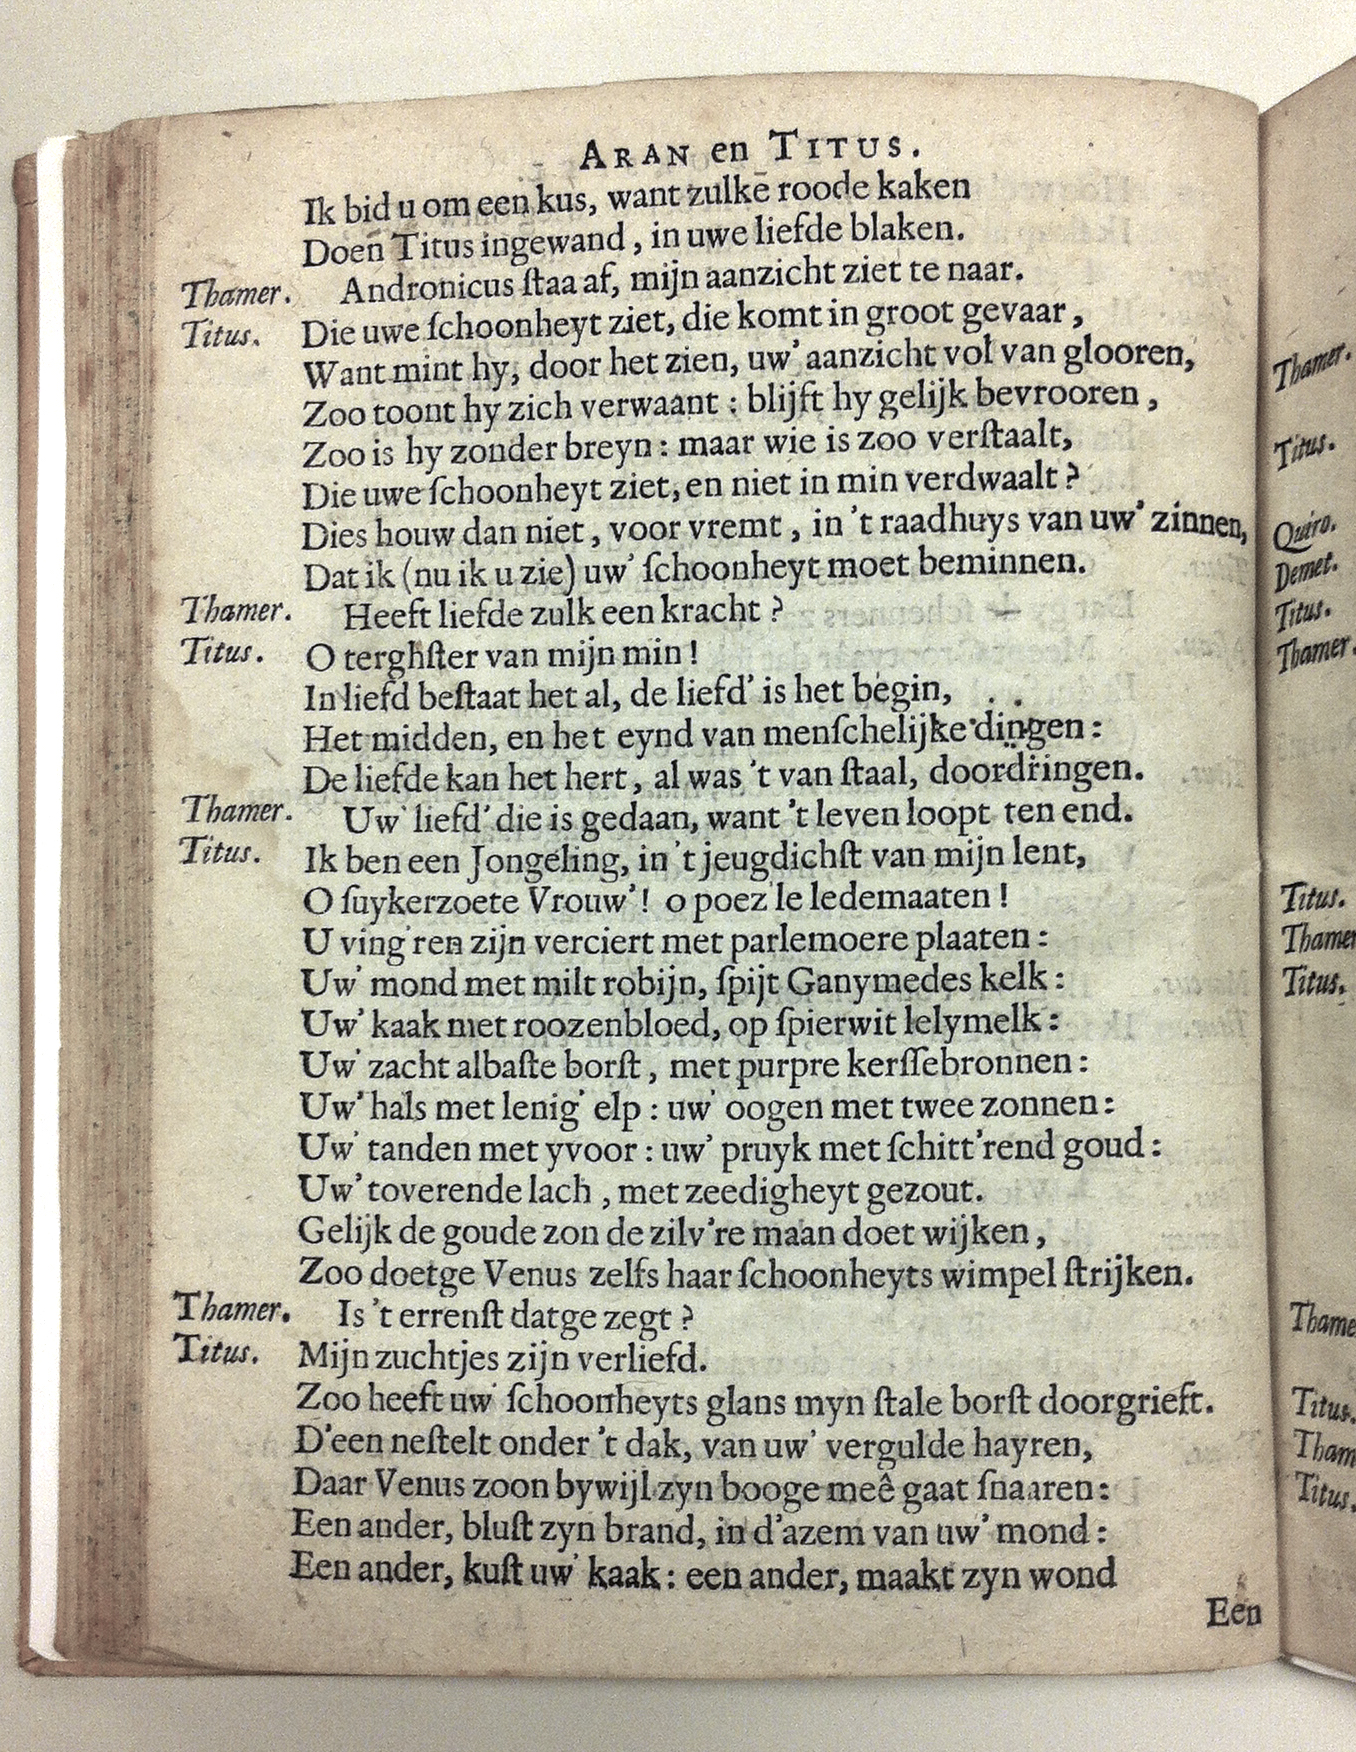 ARAN en TITUS.
Ik bid u om een kus, want zulkē roode kaken
Doen Titus ingewand, in uwe liefde blaken.
Thamer. Andronicus ſtaa af, mijn aanzicht ziet te naar.
Titus. Die uwe ſchoonheyt ziet, die komt in groot gevaar,
Want mint hy, door het zien, uw' aanzicht vol van glooren,
Zoo toont hy zich verwaant: blijft hy gelijk bevrooren,
Zoo is hy zonder breyn: maar wie is zoo verſtaalt,
Die uwe ſchoonheyt ziet, en niet in min verdwaalt?
Dies houw dan niet, voor vremt, in 't raadhuys van uw' zinnen,
Dat ik (nu ik u zie) uw' ſchoonheyt moet beminnen.
Thamer. Heeft liefde zulk een kracht?
Titus. O terghſter van mijn min!
In liefd beſtaat het al, de liefd' is het begin,
Het midden, en het eynd van menſchelijke dingen:
De liefde kan het hert, al was 't van ſtaal, doordringen.
Thamer. Uw' liefd' die is gedaan, want 't leven loopt ten end.
Titus. Ik ben een Jongeling, in 't jeugdichſt van mijn lent,
O ſuykerzoete Vrouw'! o poez'le ledemaaten!
U ving'ren zijn verciert met parlemoere plaaten:
Uw' mond met milt robijn, ſpijt Ganymedes kelk:
Uw' kaak met roozenbloed, op ſpierwit lelymelk:
Uw' zacht albaſte borſt, met purpre kerſſebronnen:
Uw' hals met lenig' elp: uw' oogen met twee zonnen:
Uw' tanden met yvoor: uw' pruyk met ſchitt'rend goud:
Uw' toverende lach, met zeedigheyt gezout.
Gelijk de goude zon de zilv're maan doet wijken,
Zoo doetge Venus zelfs haar ſchoonheyts wimpel ſtrijken.
Thamer. Is 't errenſt datge zegt?
Titus. Mijn zuchtjes zijn verliefd.
Zoo heeft uw' ſchoonheyts glans myn ſtale borſt doorgrieft.
D'een neſtelt onder 't dak, van uw' vergulde hayren,
Daar Venus zoon bywijl zyn booge meê gaat ſnaaren:
Een ander, bluſt zyn brand, in d'azem van uw' mond:
Een ander, kuſt uw' kaak: een ander, maakt zyn wond
Een
Thamer.
Titus.
Quiro.
Demet.
Titus.
Thamer.
Titus.
Thamer
Titus.
Thame
Titus.
Tham
Titus.